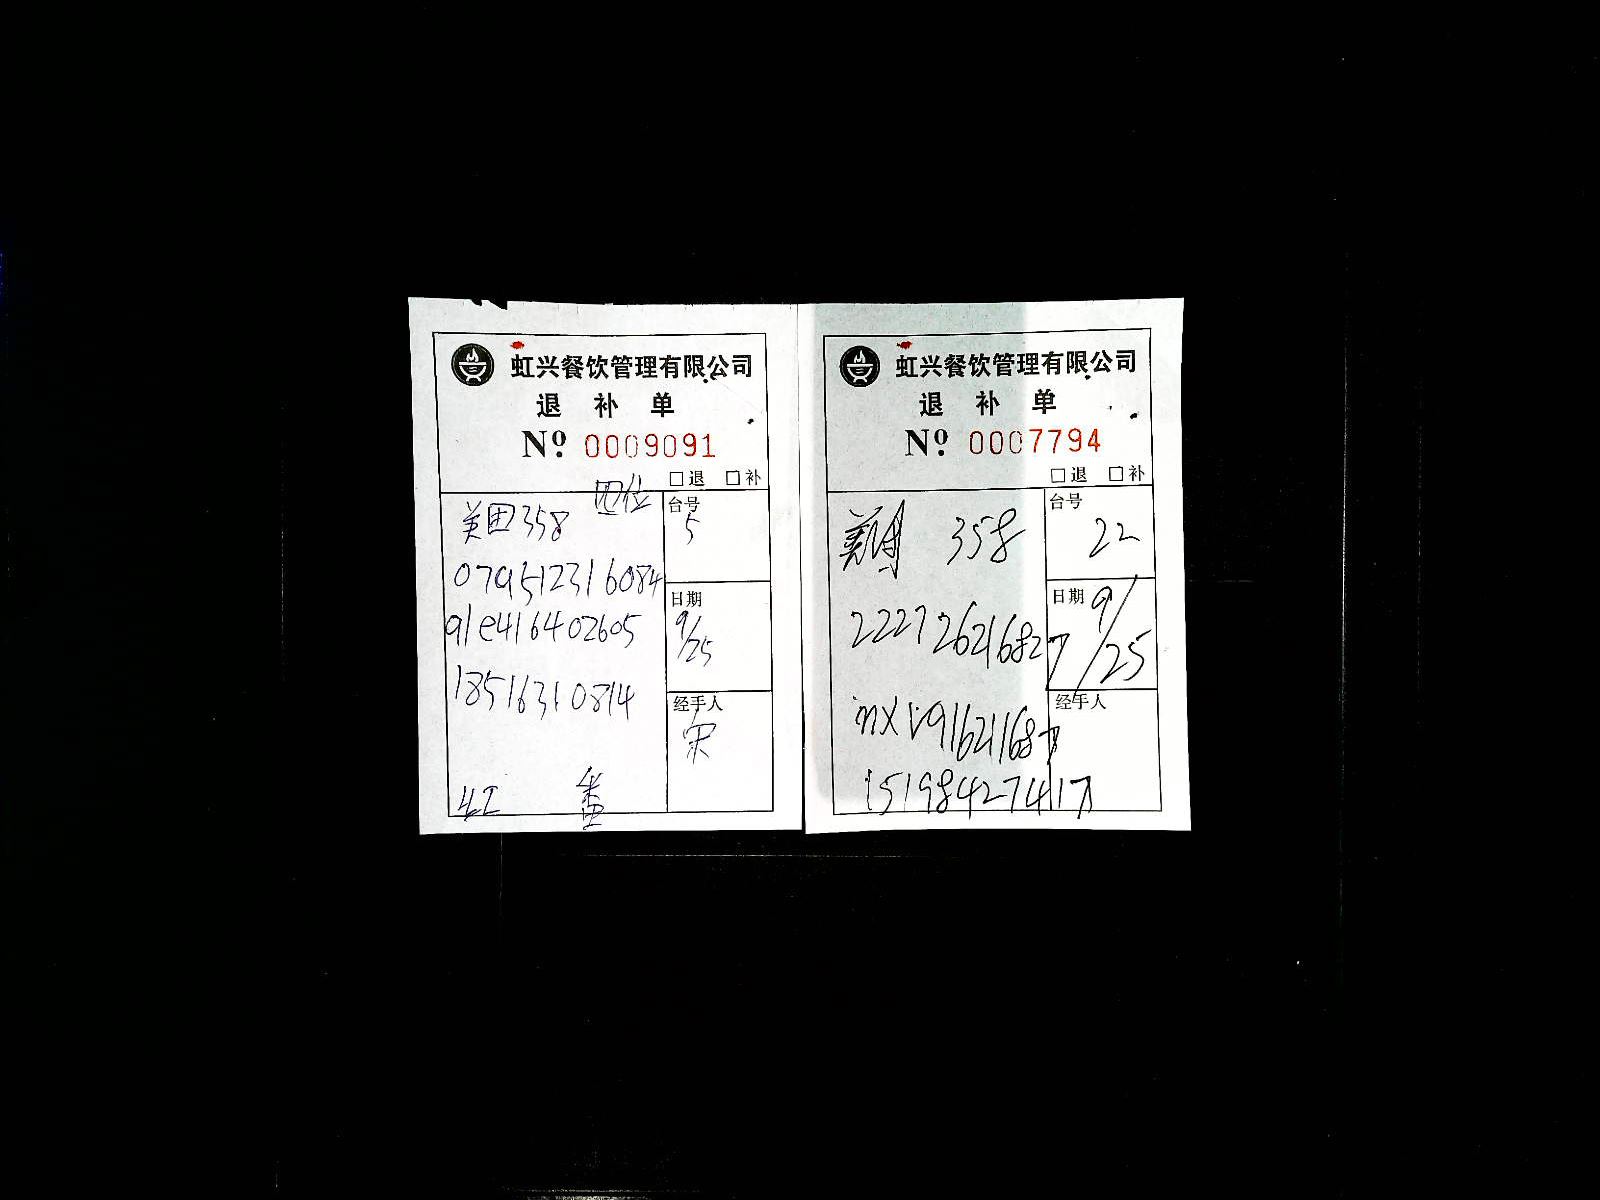 虹兴餐饮管理有限公司
退 补 单
Nº 0009091
□退 □补
四位
美团358
079512316084
91e416402605
18516310814
台号
5
日期
9/25
经手人
宋
虹兴餐饮管理有限公司
退 补 单
Nº 0007794
□退 □补
美团 358
222726216827
15198427417
台号
22
日期
9/25
经手人